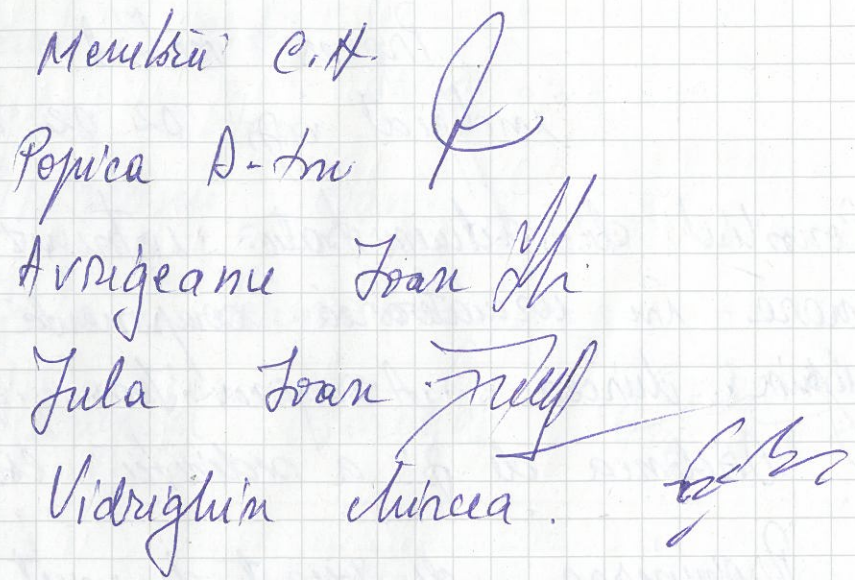 Membrii C.A.
Popica D-tru
Avrigeanu Ioan
Jula Ioan
Vidrighin Mircea.